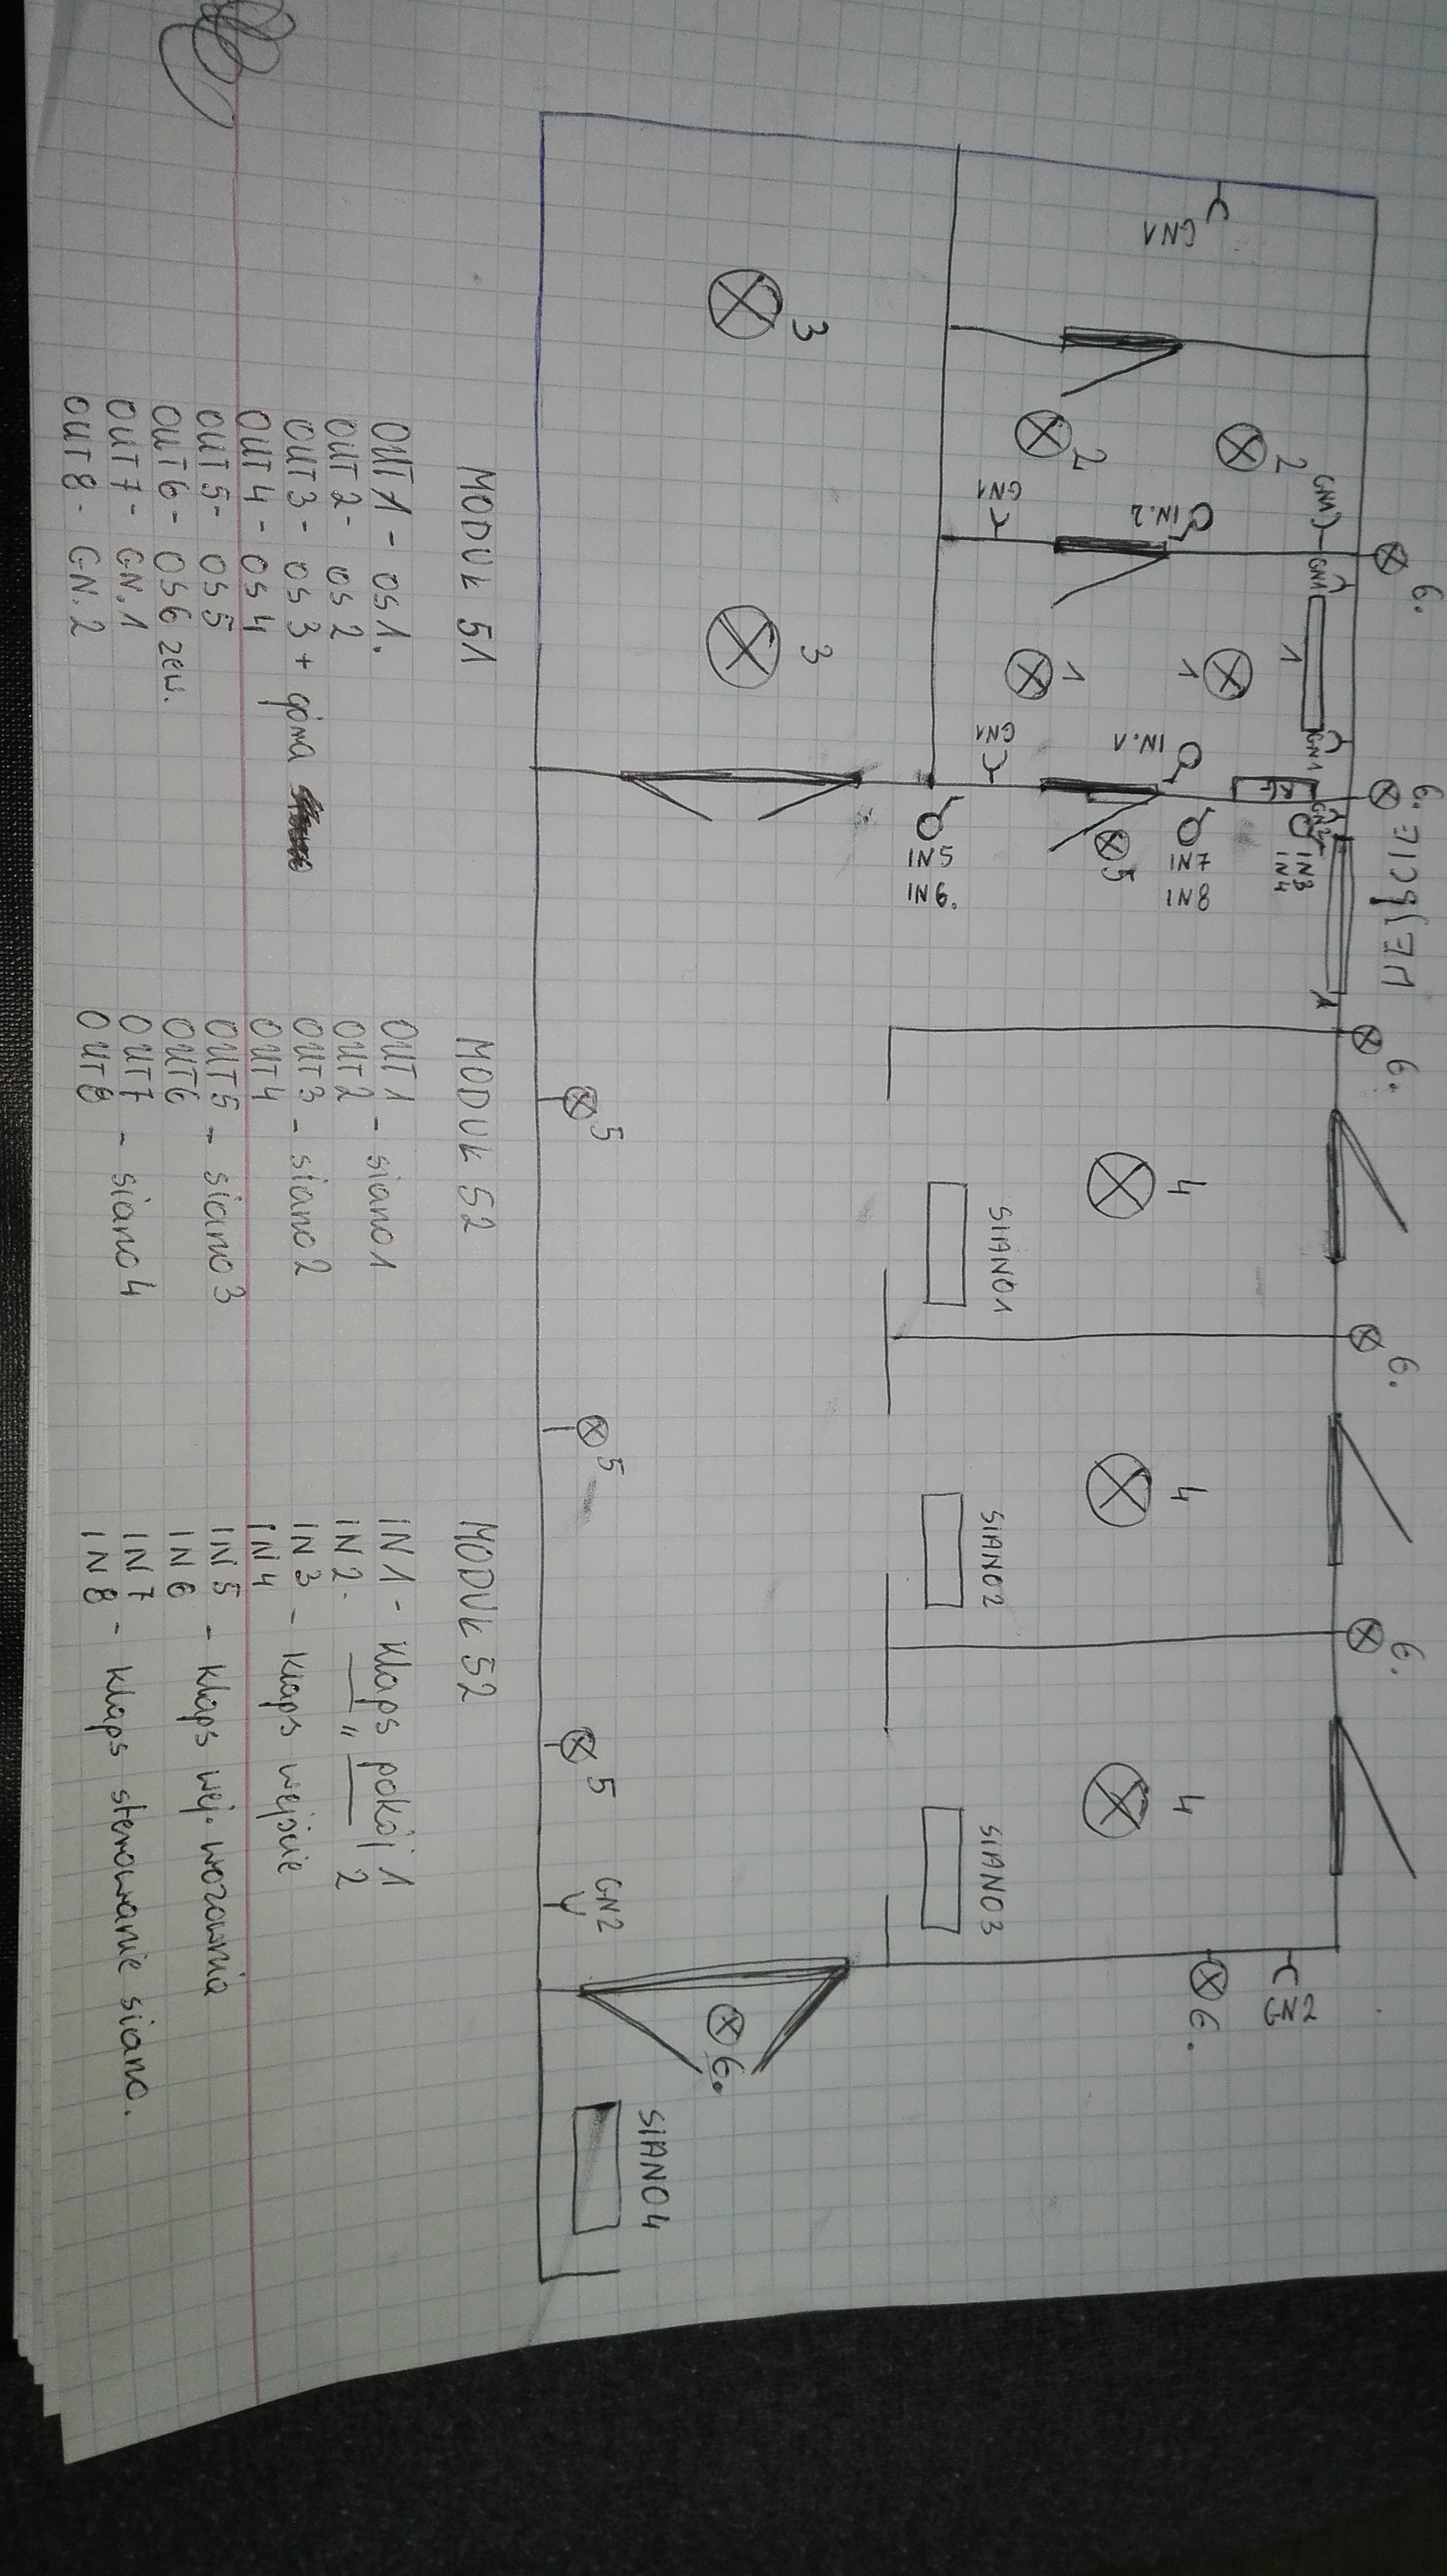 6.
6.
WEJŚCIE
6.
6.
6.
GN1
GN1
GN1
GN2
IN3
IN4
GN2
2
1
RG
6.
GN1
IN.2
1
IN.1
IN7
IN8
5
4
4
4
2
1
GN1
GN1
SIANO1
SIANO2
SIANO3
IN5
IN6.
3
3
6.
SIANO4
5
5
5
GN2
MODUŁ 51
OUT1 - OS1.
OUT2- OS2
OUT3- OS3 + góra
OUT4 - OS4
OUT5- OS5
OUT6- OS6 zew.
OUT7- GN.1
OUT8- GN.2
MODUŁ 52
OUT1
- siano1
OUT2
OUT3
- siano2
OUT4
OUT5
- siano3
OUT6
OUT7
- siano4
OUT8
MODUŁ 52
IN1- klaps pokój 1
IN2- —— " —— 2
IN3
- klaps wejście
IN4
IN5
- klaps wej. wozownia
IN6
IN7
- klaps sterowanie siano.
IN8